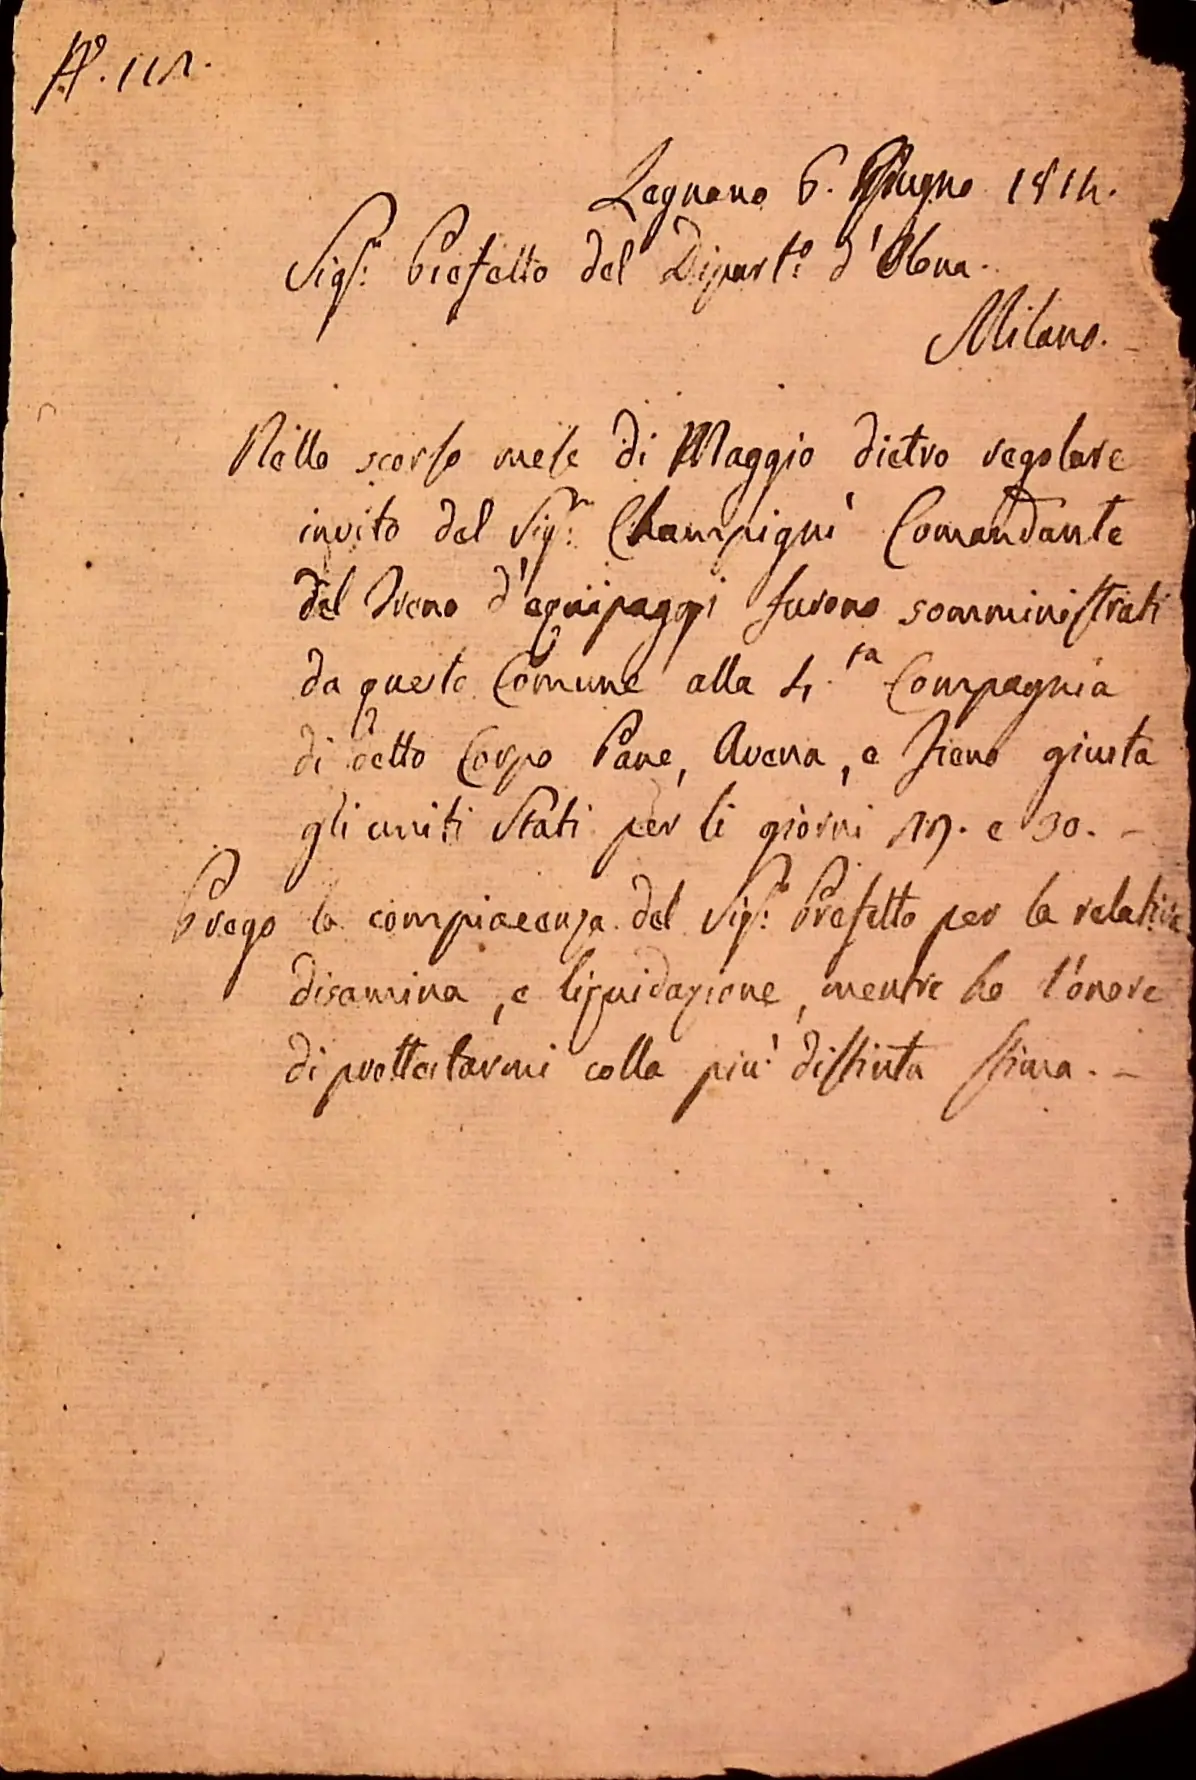 N.º 112.
Legnano 6. Giugno 1814.
Sig.r Prefetto del Dipart.º d'Olona.
Milano.
Nello scorso mese di Maggio dietro regolare
invito del Sig.r Champigni Comandante
del Treno d'equipaggi furono somministrati
da questo Comune alla 4.ta Compagnia
di detto Corpo Pane, Avena, e Fieno giusta
gli uniti Stati per li giorni e 30. -
Prego la compiacenza del Sig.r Prefetto per la relativa
disamina, e liquidazione, mentre ho l'onore
di prottestarmi colla più distinta stima. -